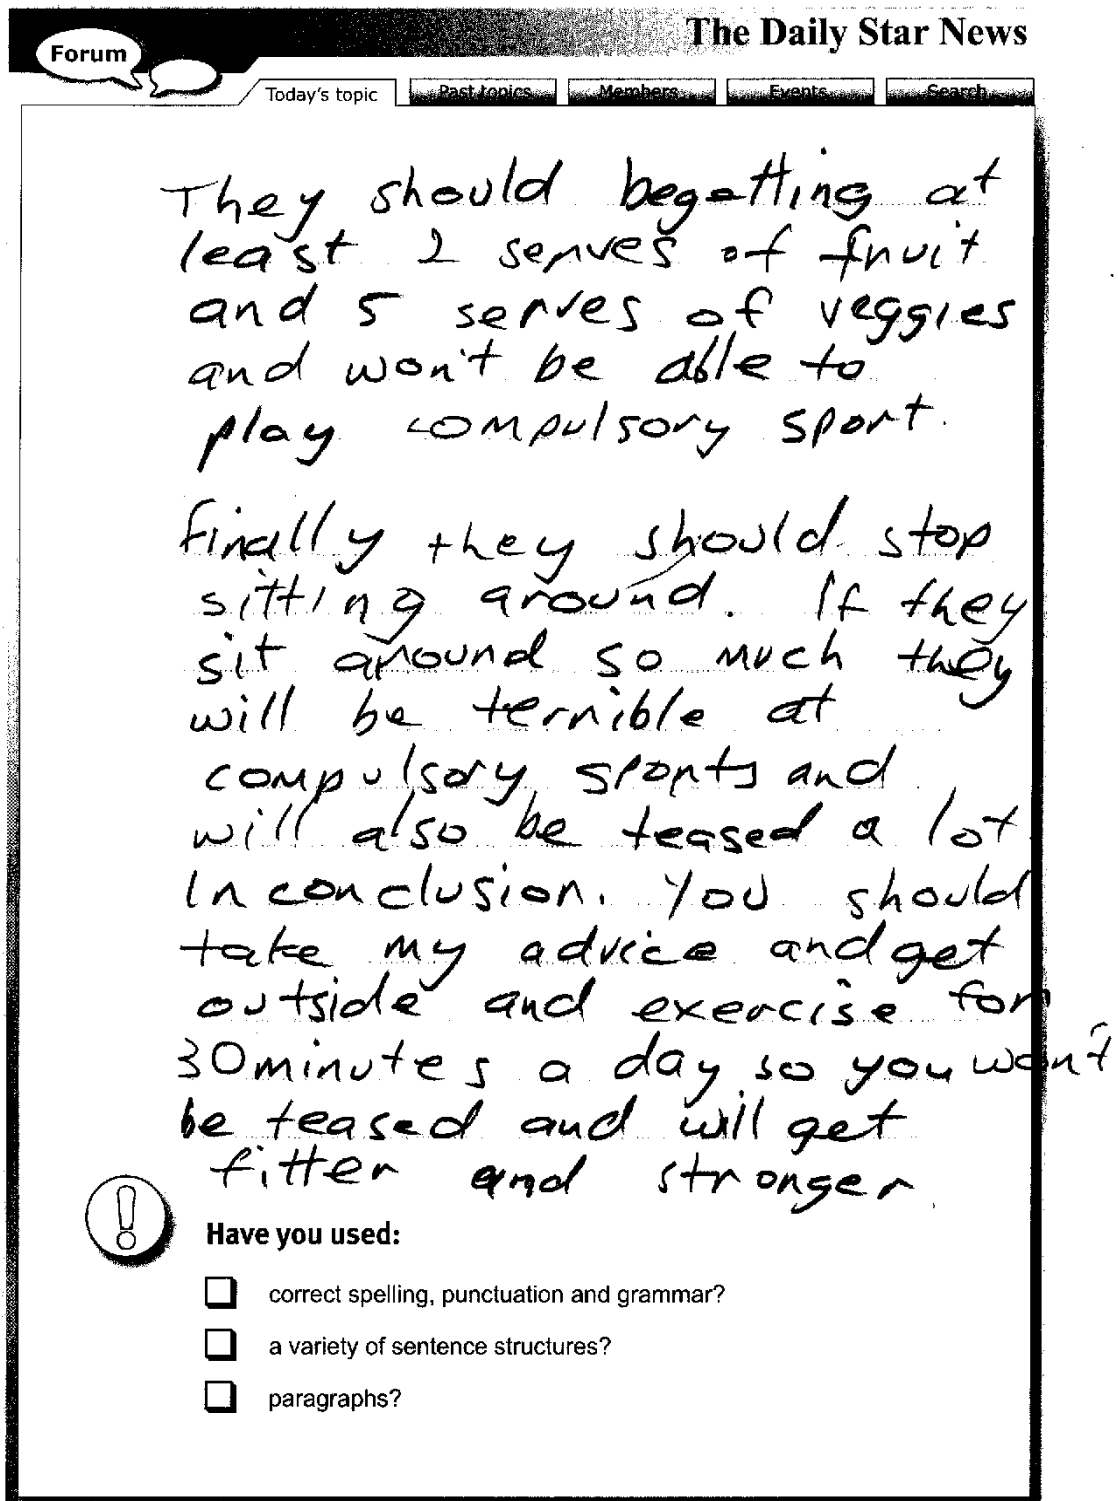 The Daily Star News
Forum
Today's topic Past topics Members Events Search
They should begetting at
least 2 serves of fruit
and 5 serves of veggies
and won't be able to
play compulsory sport.
Finally they should stop
sitting around. If they
sit around so much they
will be terrible at
compulsory sports and
will also be teased a lot.
In conclusion. You should
take my advice and get
outside and exercise for
30 minutes a day so you won't
be teased and will get
fitter and stronger.
Have you used:
correct spelling, punctuation and grammar?
a variety of sentence structures?
paragraphs?